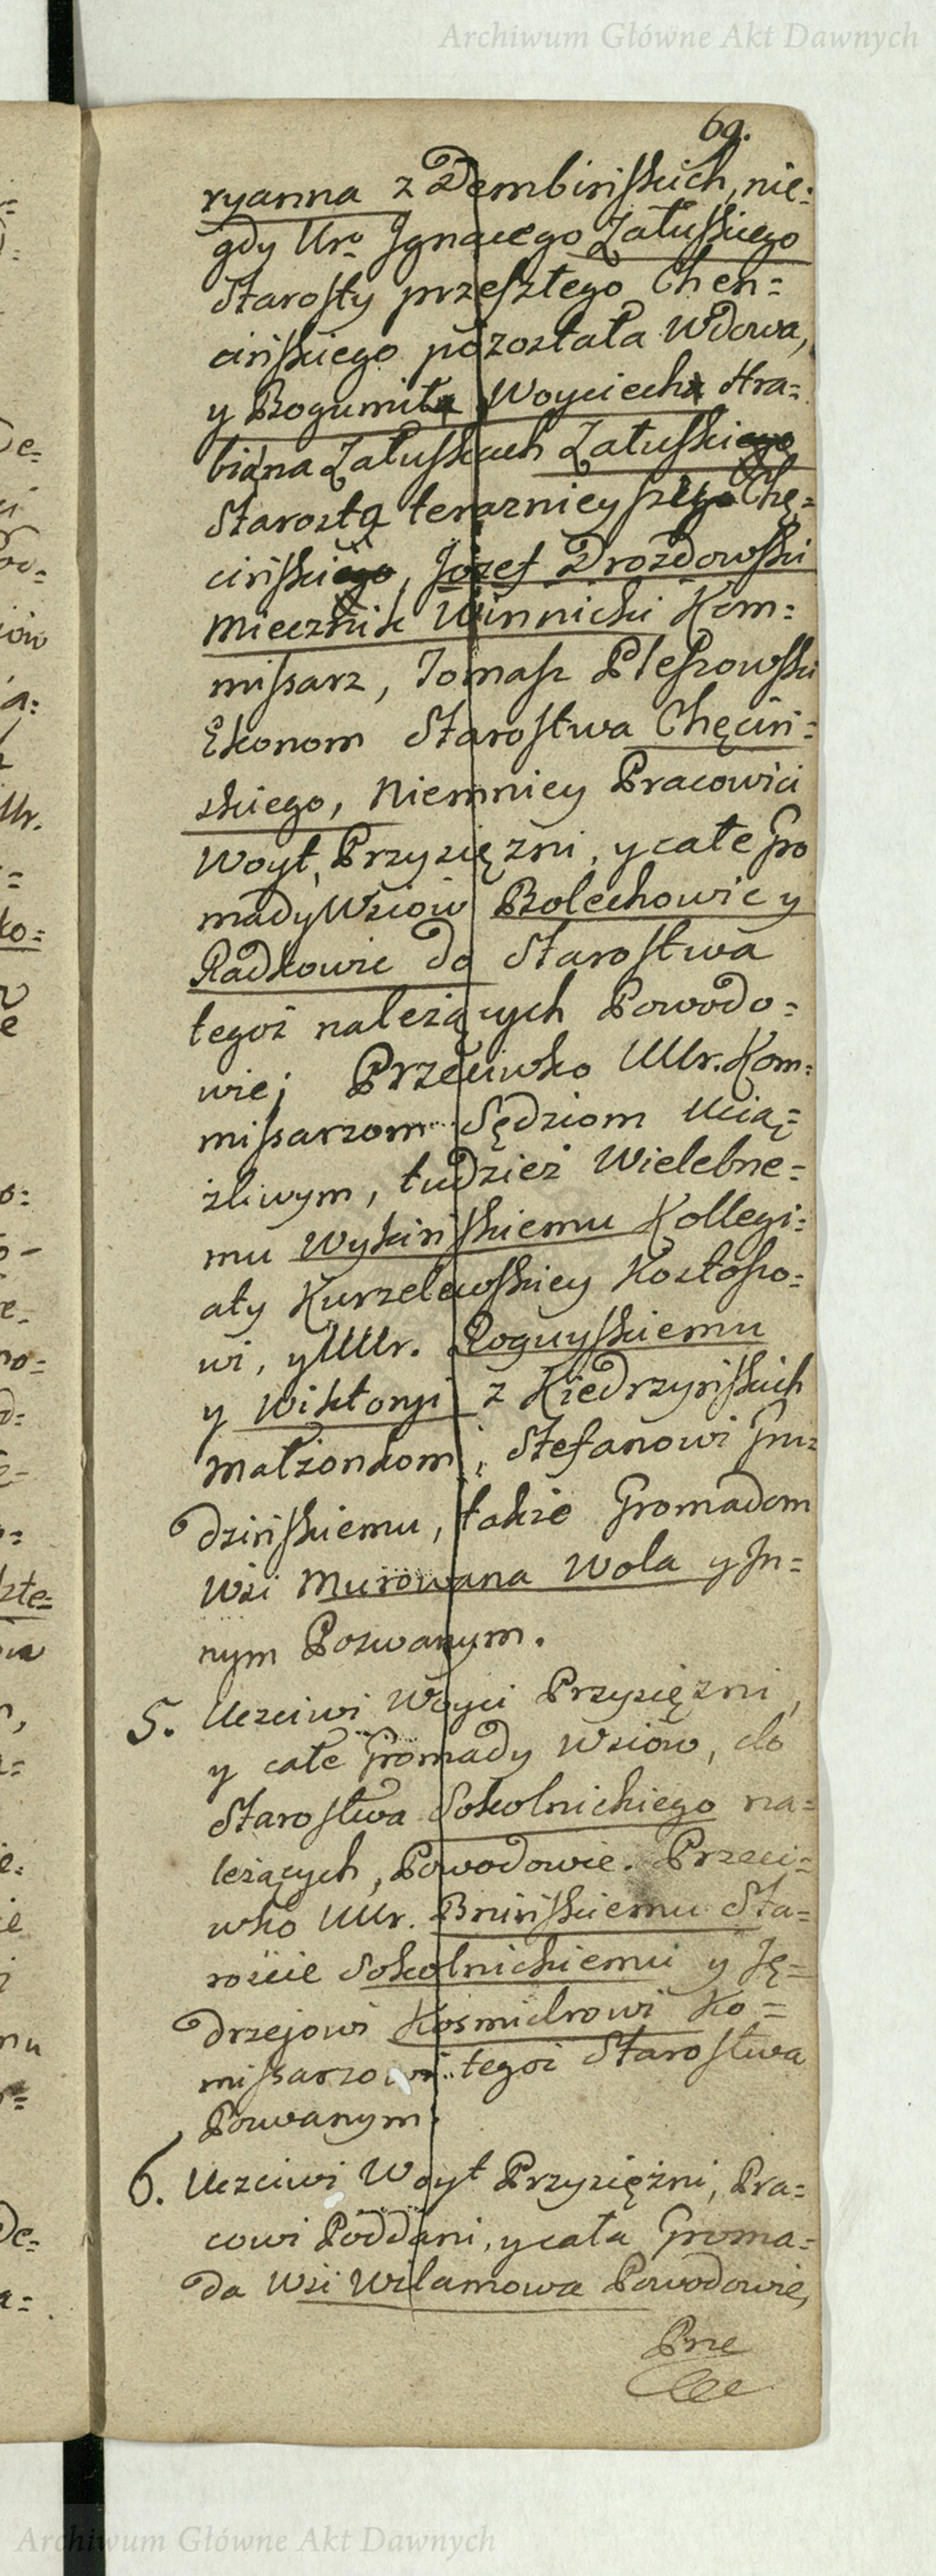 Archiwum Główne Akt Dawnych
69.
ryanna z Dembińskich, nie:
gdy Ur: Jgnacego Załuskiego
Starosty przeszłego Chen=
cińskiego pozostała Wdowa,
y Bogumiła Woyciecha Hra=
biana Załuskich Załuskiego
Starostą teraznieyszego Chę=
cińskiego, Jozef Drozdowski
Miecznik Winnicki Kom=
missarz, Tomasz Pleszowski
Ekonom Starostwa Chęciń=
skiego, Niemniey Pracowici
Woyt, Przysiężni, y całe Gro
mady Wsiow Bolechowic y
Radkowic do Starostwa
tegoż należących Powodo=
wie; Przeciwko Ur. Kom=
missarzom Sędziom Uciąż=
żliwym, tudzież Wielebne=
mu Wykińskiemu Kollegi=
aty Kurzelewskiey Kustoszo=
wi, y Ur. Roguyskiemu
y Wiktoryi z Kiedrzyńskich
małżonkom, Stefanowi Gru=
dzińskiemu, także Gromadom
Wsi Murowana Wola y In=
nym Pozwanym.
5. Uczciwi Woyci Przysiężni,
y całe Gromady Wsiow, do
Starostwa Sokolnickiego na=
leżących, Powodowie. Przeci=
wko Ur. Bnińskiemu Sta=
roście Sokolnickiemu y Ję=
drzejowi Kosmidrowi Ko=
missarzowi tegoż Starostwa
Pozwanym.
6. Uczciwi Woyt Przysiężni, Pra=
cowi Poddani, y cała Groma=
da Wsi Wilamowa Powodowie,
Prze
Archiwum Główne Akt Dawnych